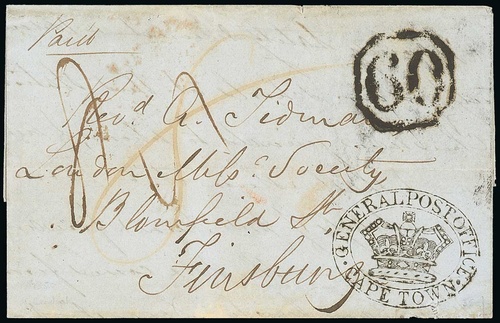 Paid
60
Revd A. Tidman
London Missy Society
Blomfield St.
Finsbury
· GENERAL POST OFFICE ·
CAPE TOWN